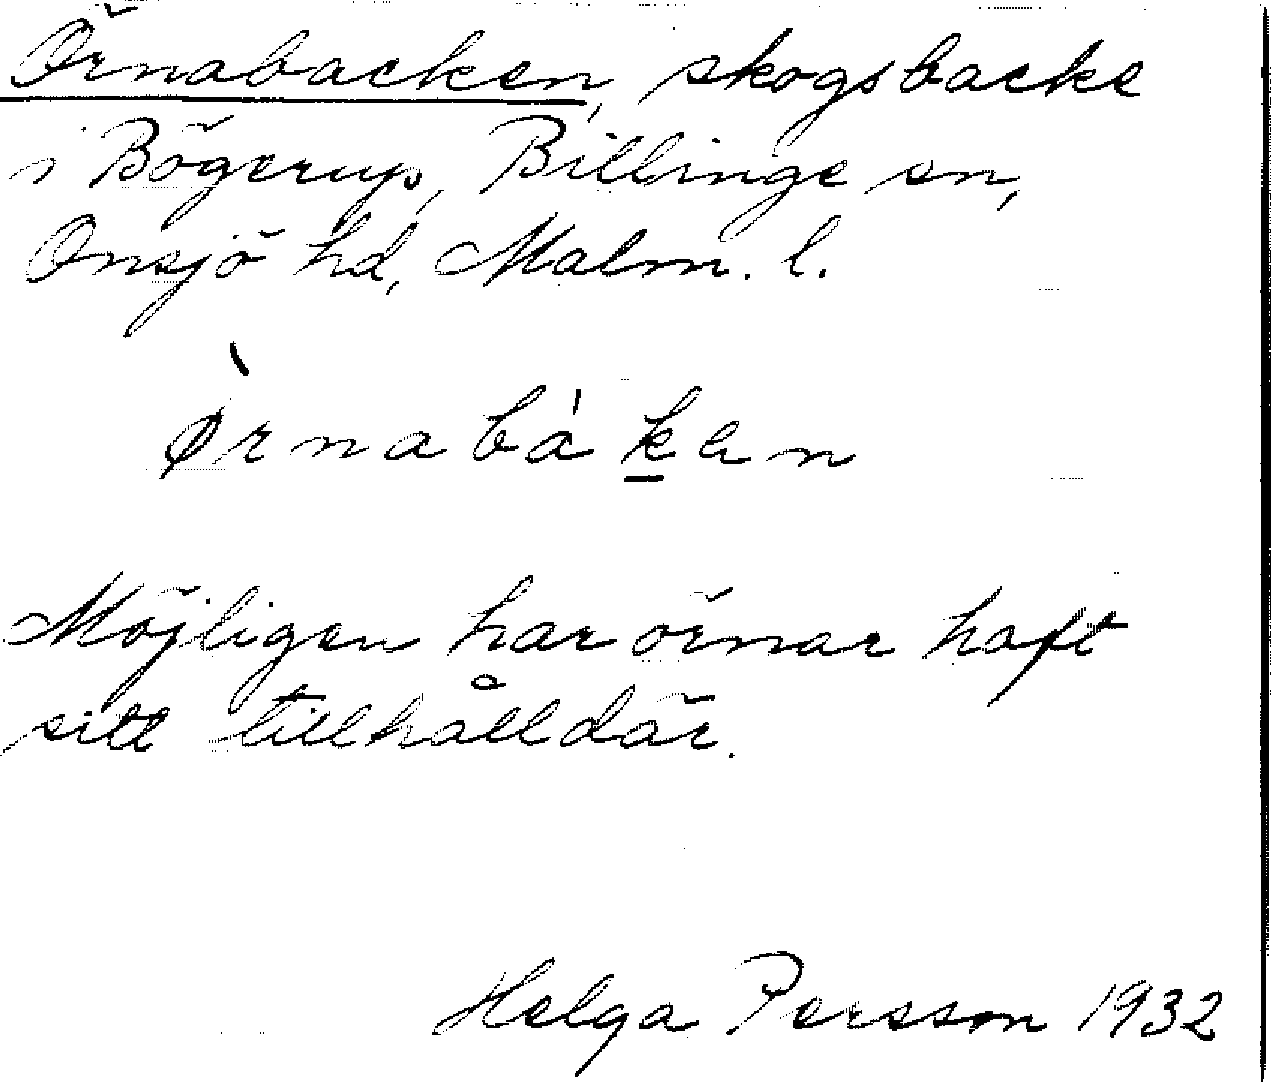 Örnabacken, skogsbacke
i Bögerup, Billinge sn,
Onsjö hd, Malm. l.
ø̀rnabáḵen
Möjligen har örnar haft
sitt tillhåll där.
Helga Persson 1932